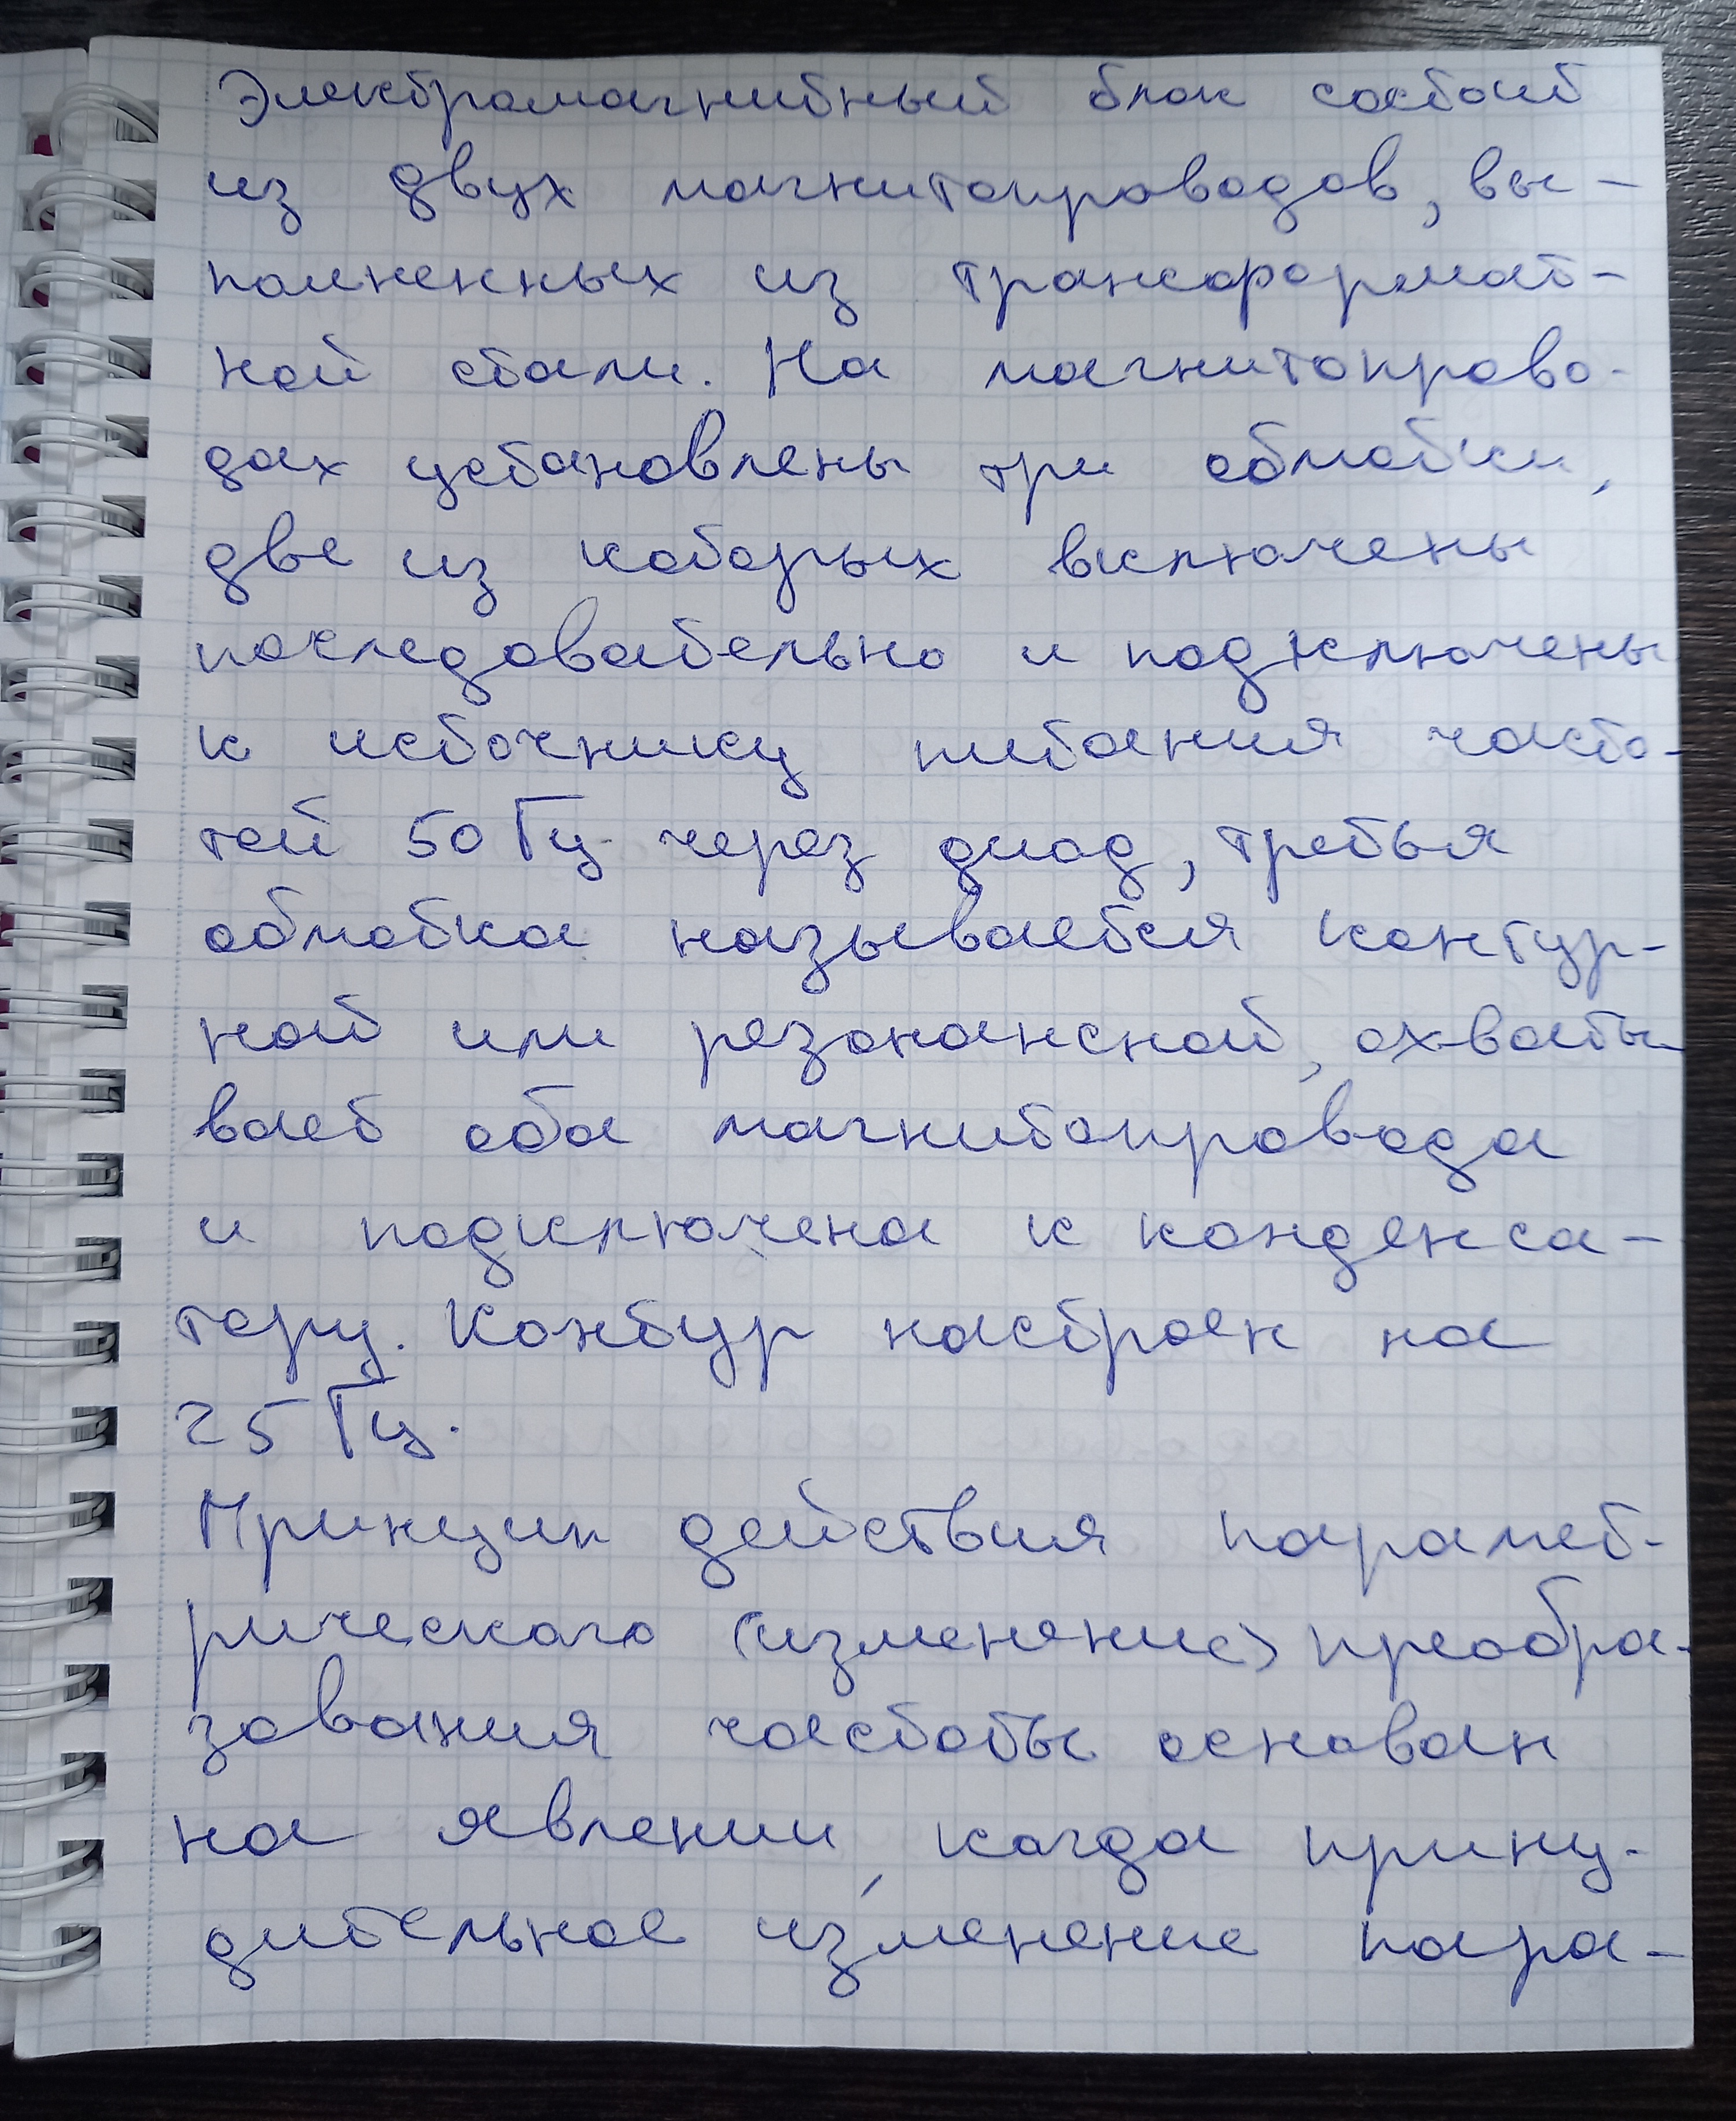 Электромагнитный блок состоит
из двух магнитопроводов, вы-
полненных из трансформат-
ной стали. На магнитопрово-
дах установлены три обмотки,
две из которых включены
последовательно и подключены
к источнику питания часто-
той 50 Гц через диод, третья
обмотка называется контур-
ной или резонансной, охваты-
вает оба магнитопровода
и подключена к конденса-
тору. Контур настроен на
25 Гц.
Принцип действия парамет-
рического (изменение) преобра-
зования частоты основан
на явлении, когда прину-
дительное изменение пара-